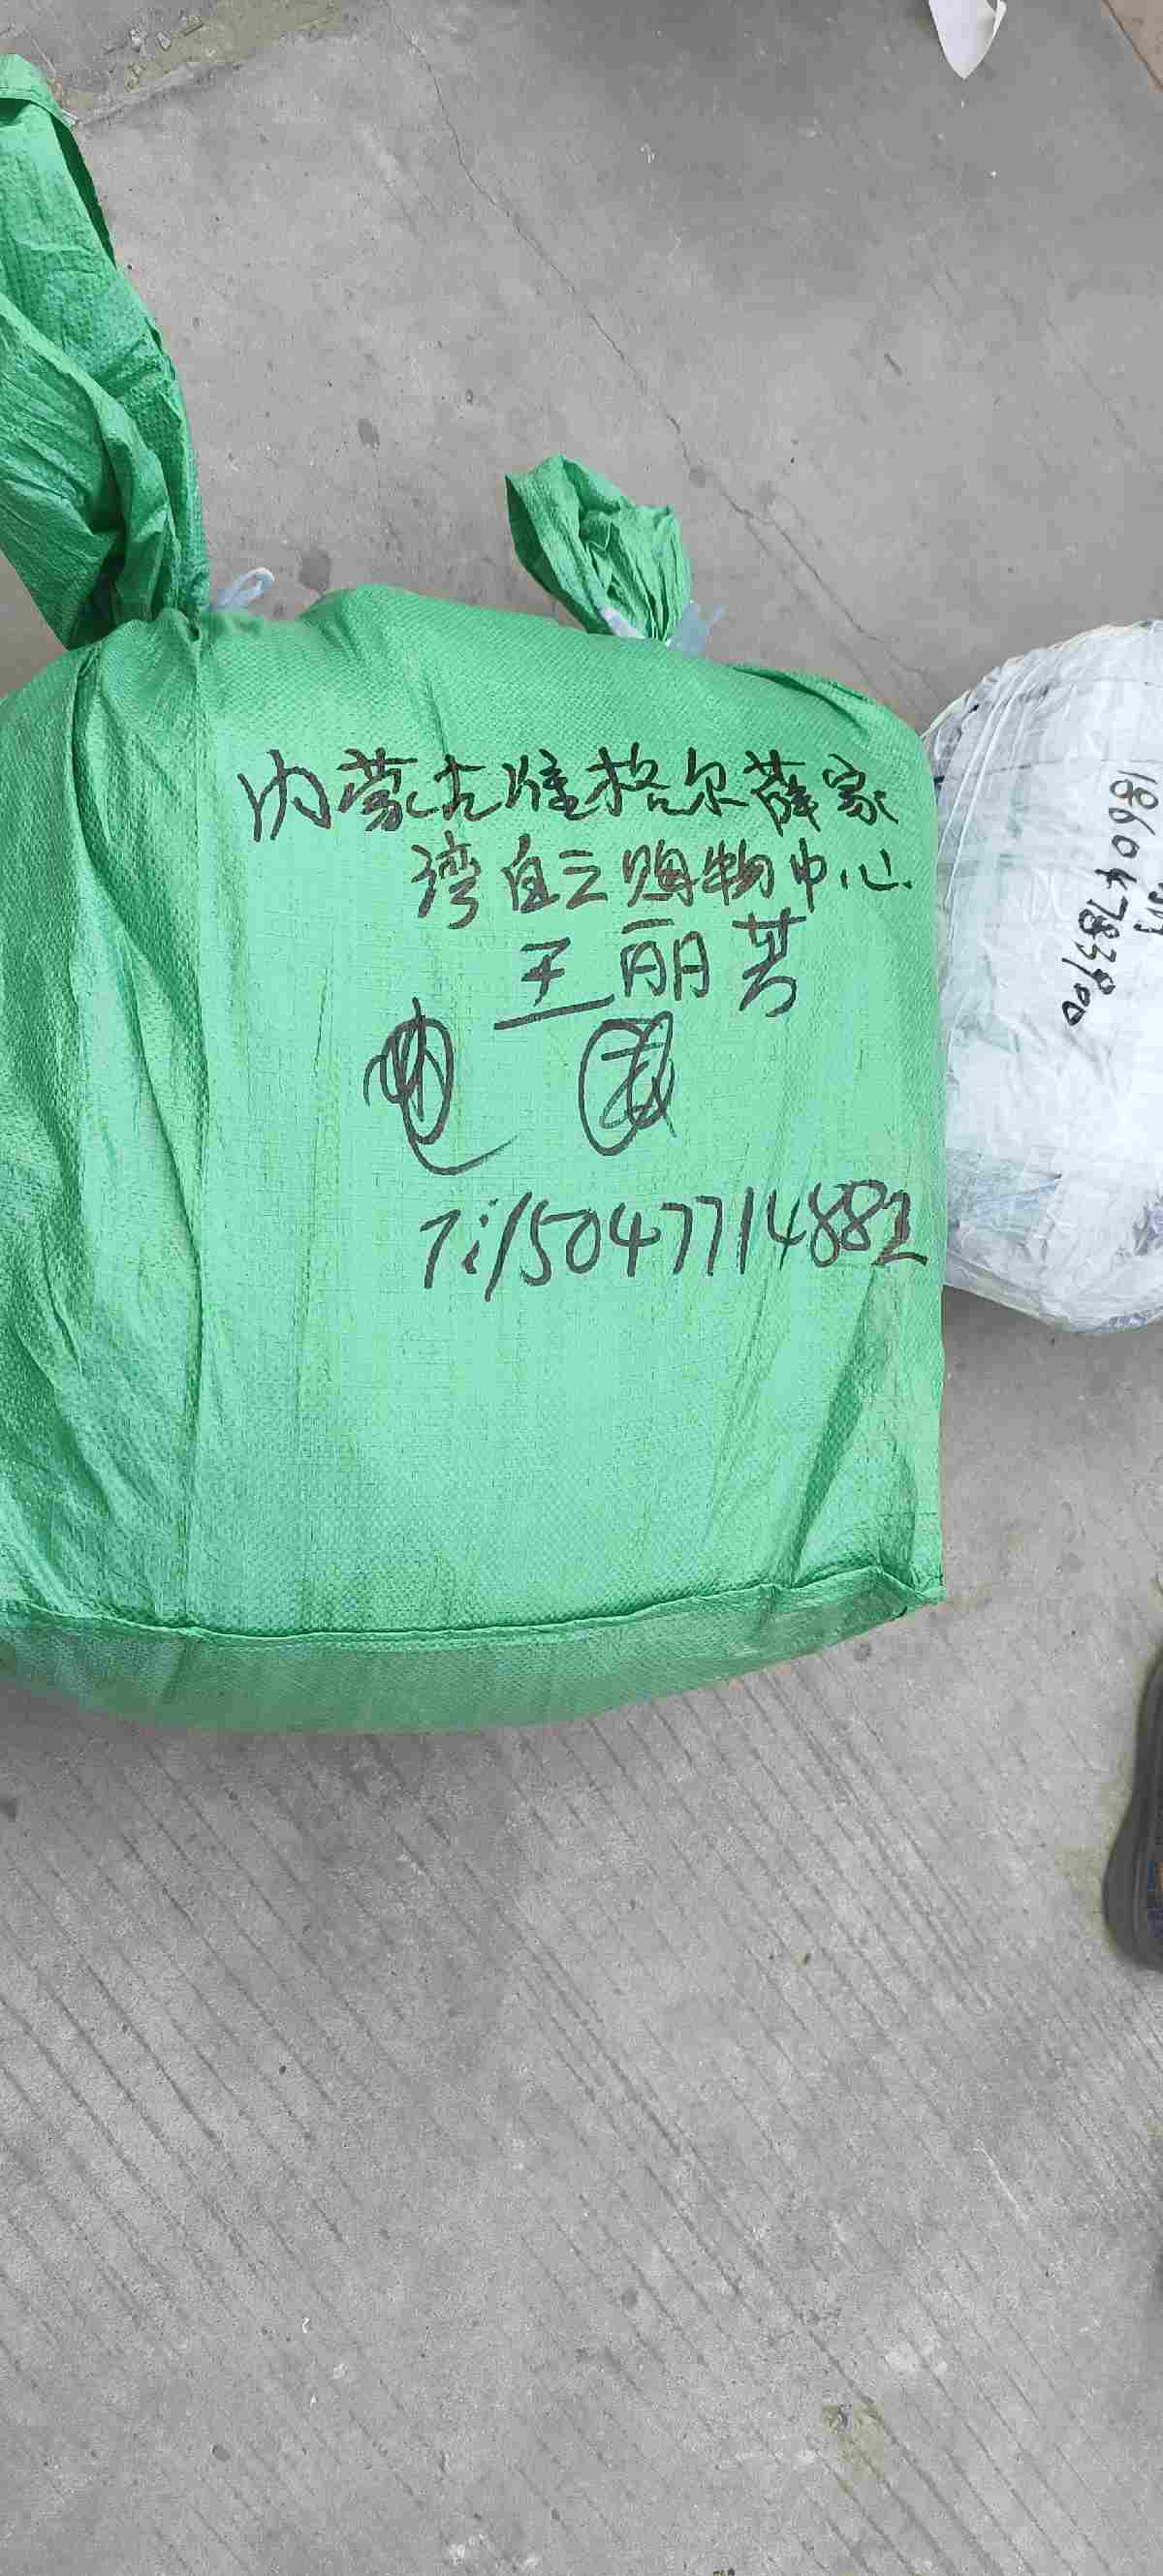 内蒙古准格尔薛家
湾自云购物中心
王丽芳
电
Ti15047714882
18604783900